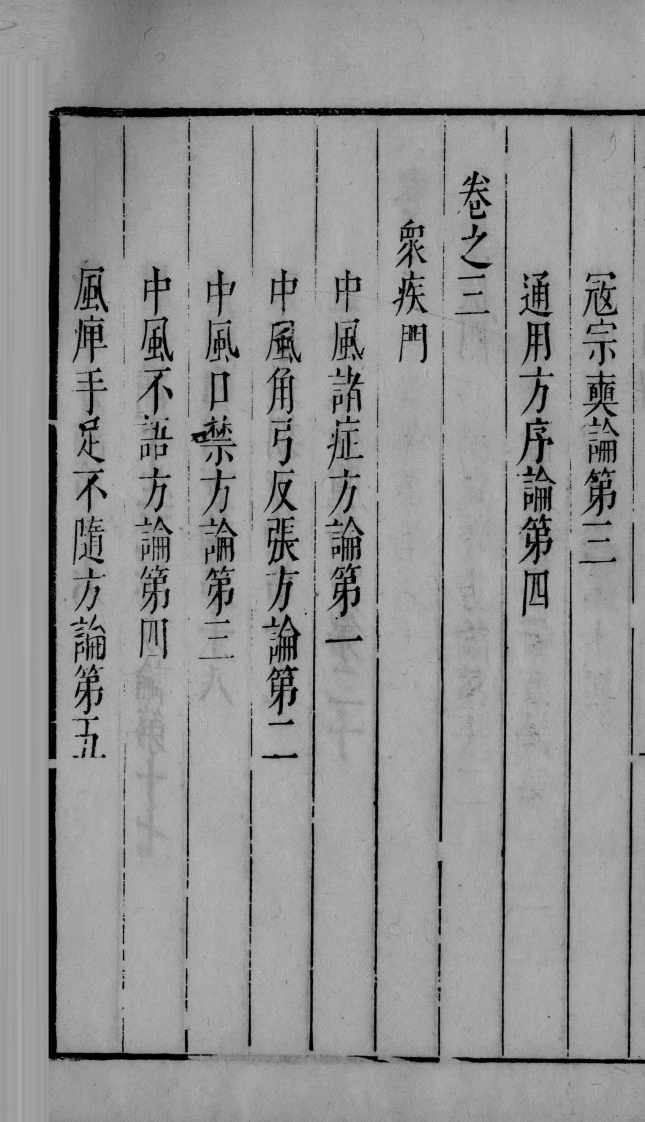 冦宗奭論第三
通用方序論第四
卷之三
衆疾門
中風諸症方論第一
中風角弓反張方論第二
中風口禁方論第三
中風不語方論第四
風痺手足不隨方論第五